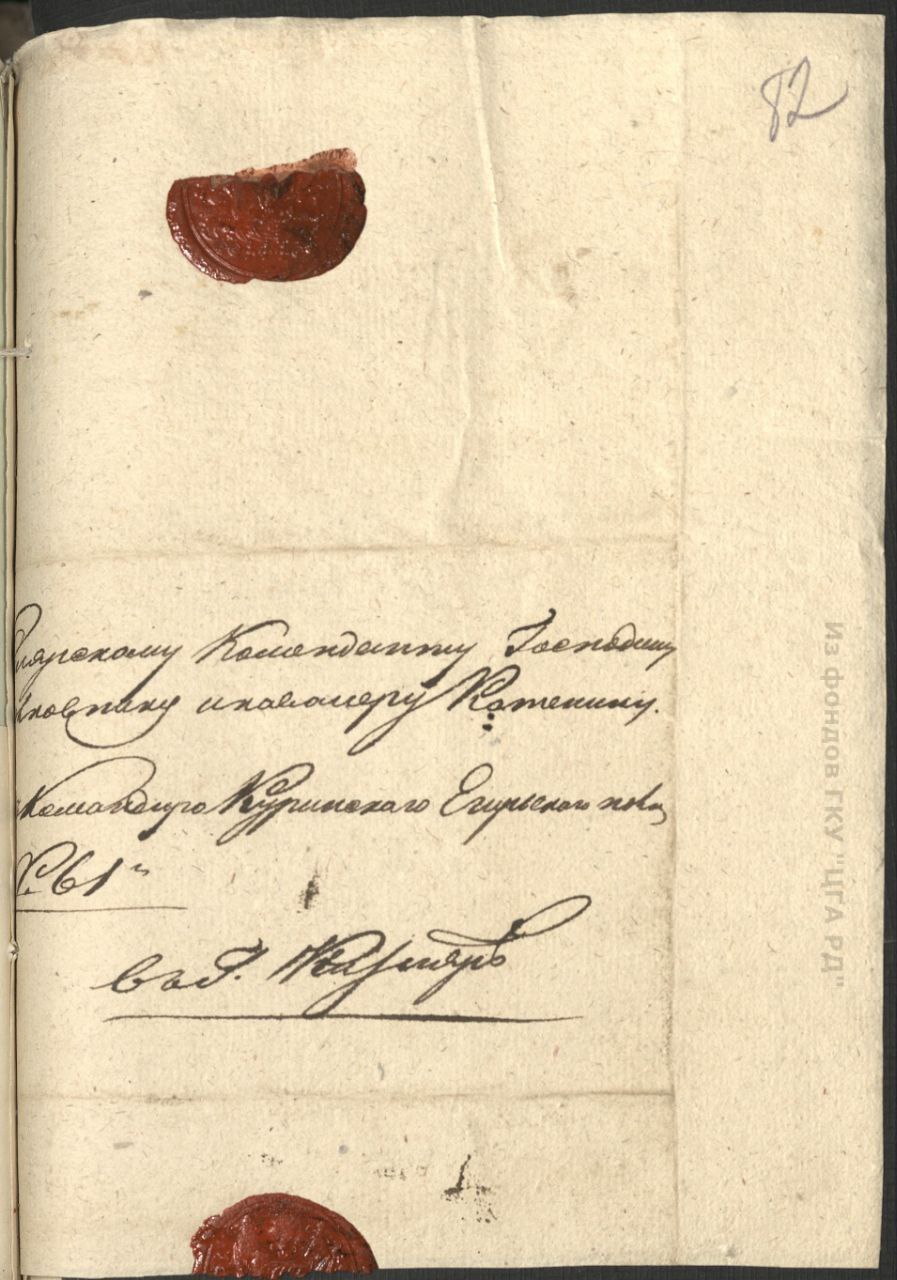 82
лярскому Коменданту Господину
ковнику и кавалеру Катенину.
Командира Куринскаго Егерьскаго полка
№ 61й
въ г. Кизляръ
Из фондов ГКУ "ЦГА РД"